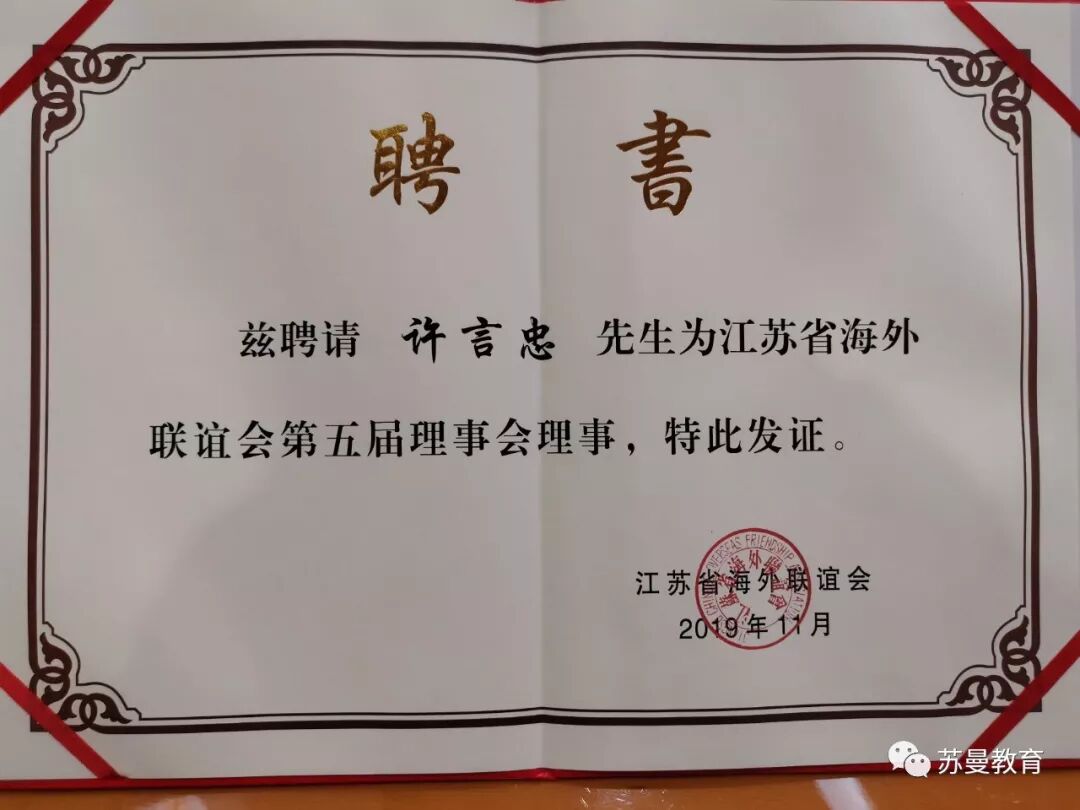 聘書
兹聘请 许言忠 先生为江苏省海外
联谊会第五届理事会理事，特此发证。
江苏省海外联谊会
2019年11月
苏曼教育